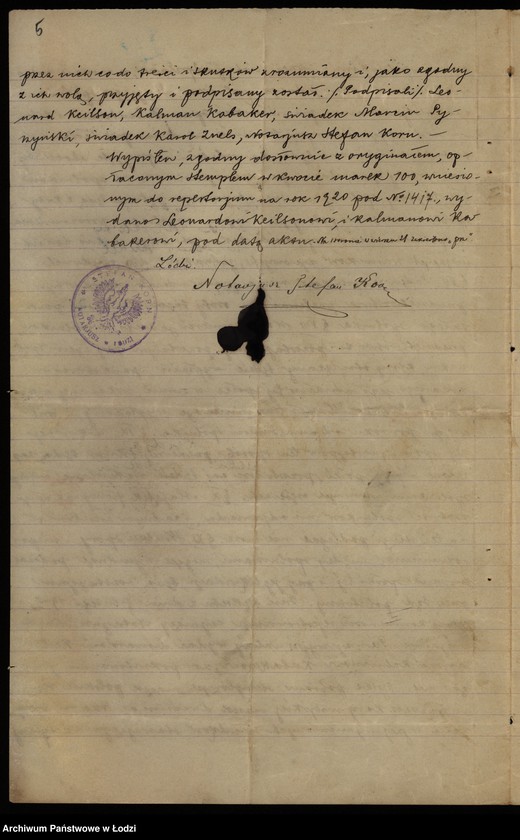 5
przez nich co do treści i skutków zrozumiany i, jako zgodny
z ich wolą, przyjęty i podpisany został. /: Podpisali /: Leo-
nard Keilson, Kalman Kabaker, świadek Marcin Py-
żyński, świadek Karol Znels, Notarjusz Stefan Korn. —
Wypis ten, zgodny dosłownie z oryginałem, op-
łaconym stemplem w kwocie marek 100, wniesio-
nym do repertorjum na rok 1920 pod № 1417, wy-
dano Leonardowi Keilsonowi i Kalmanowi Ka-
bakerowi, pod datą aktu.
Łódź
Notarjusz Stefan Korn
STEFAN KORN
NOTARJUSZ
Archiwum Państwowe w Łodzi